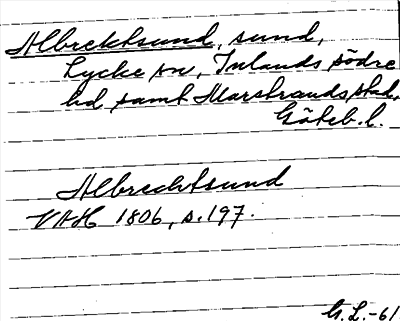 Albrektsund, sund,
Lycke sn, Inlands södre
hd samt Marstrands stad,
Göteb. l.
Albrechtsund
VAH 1806, s. 197.
G. L. -61